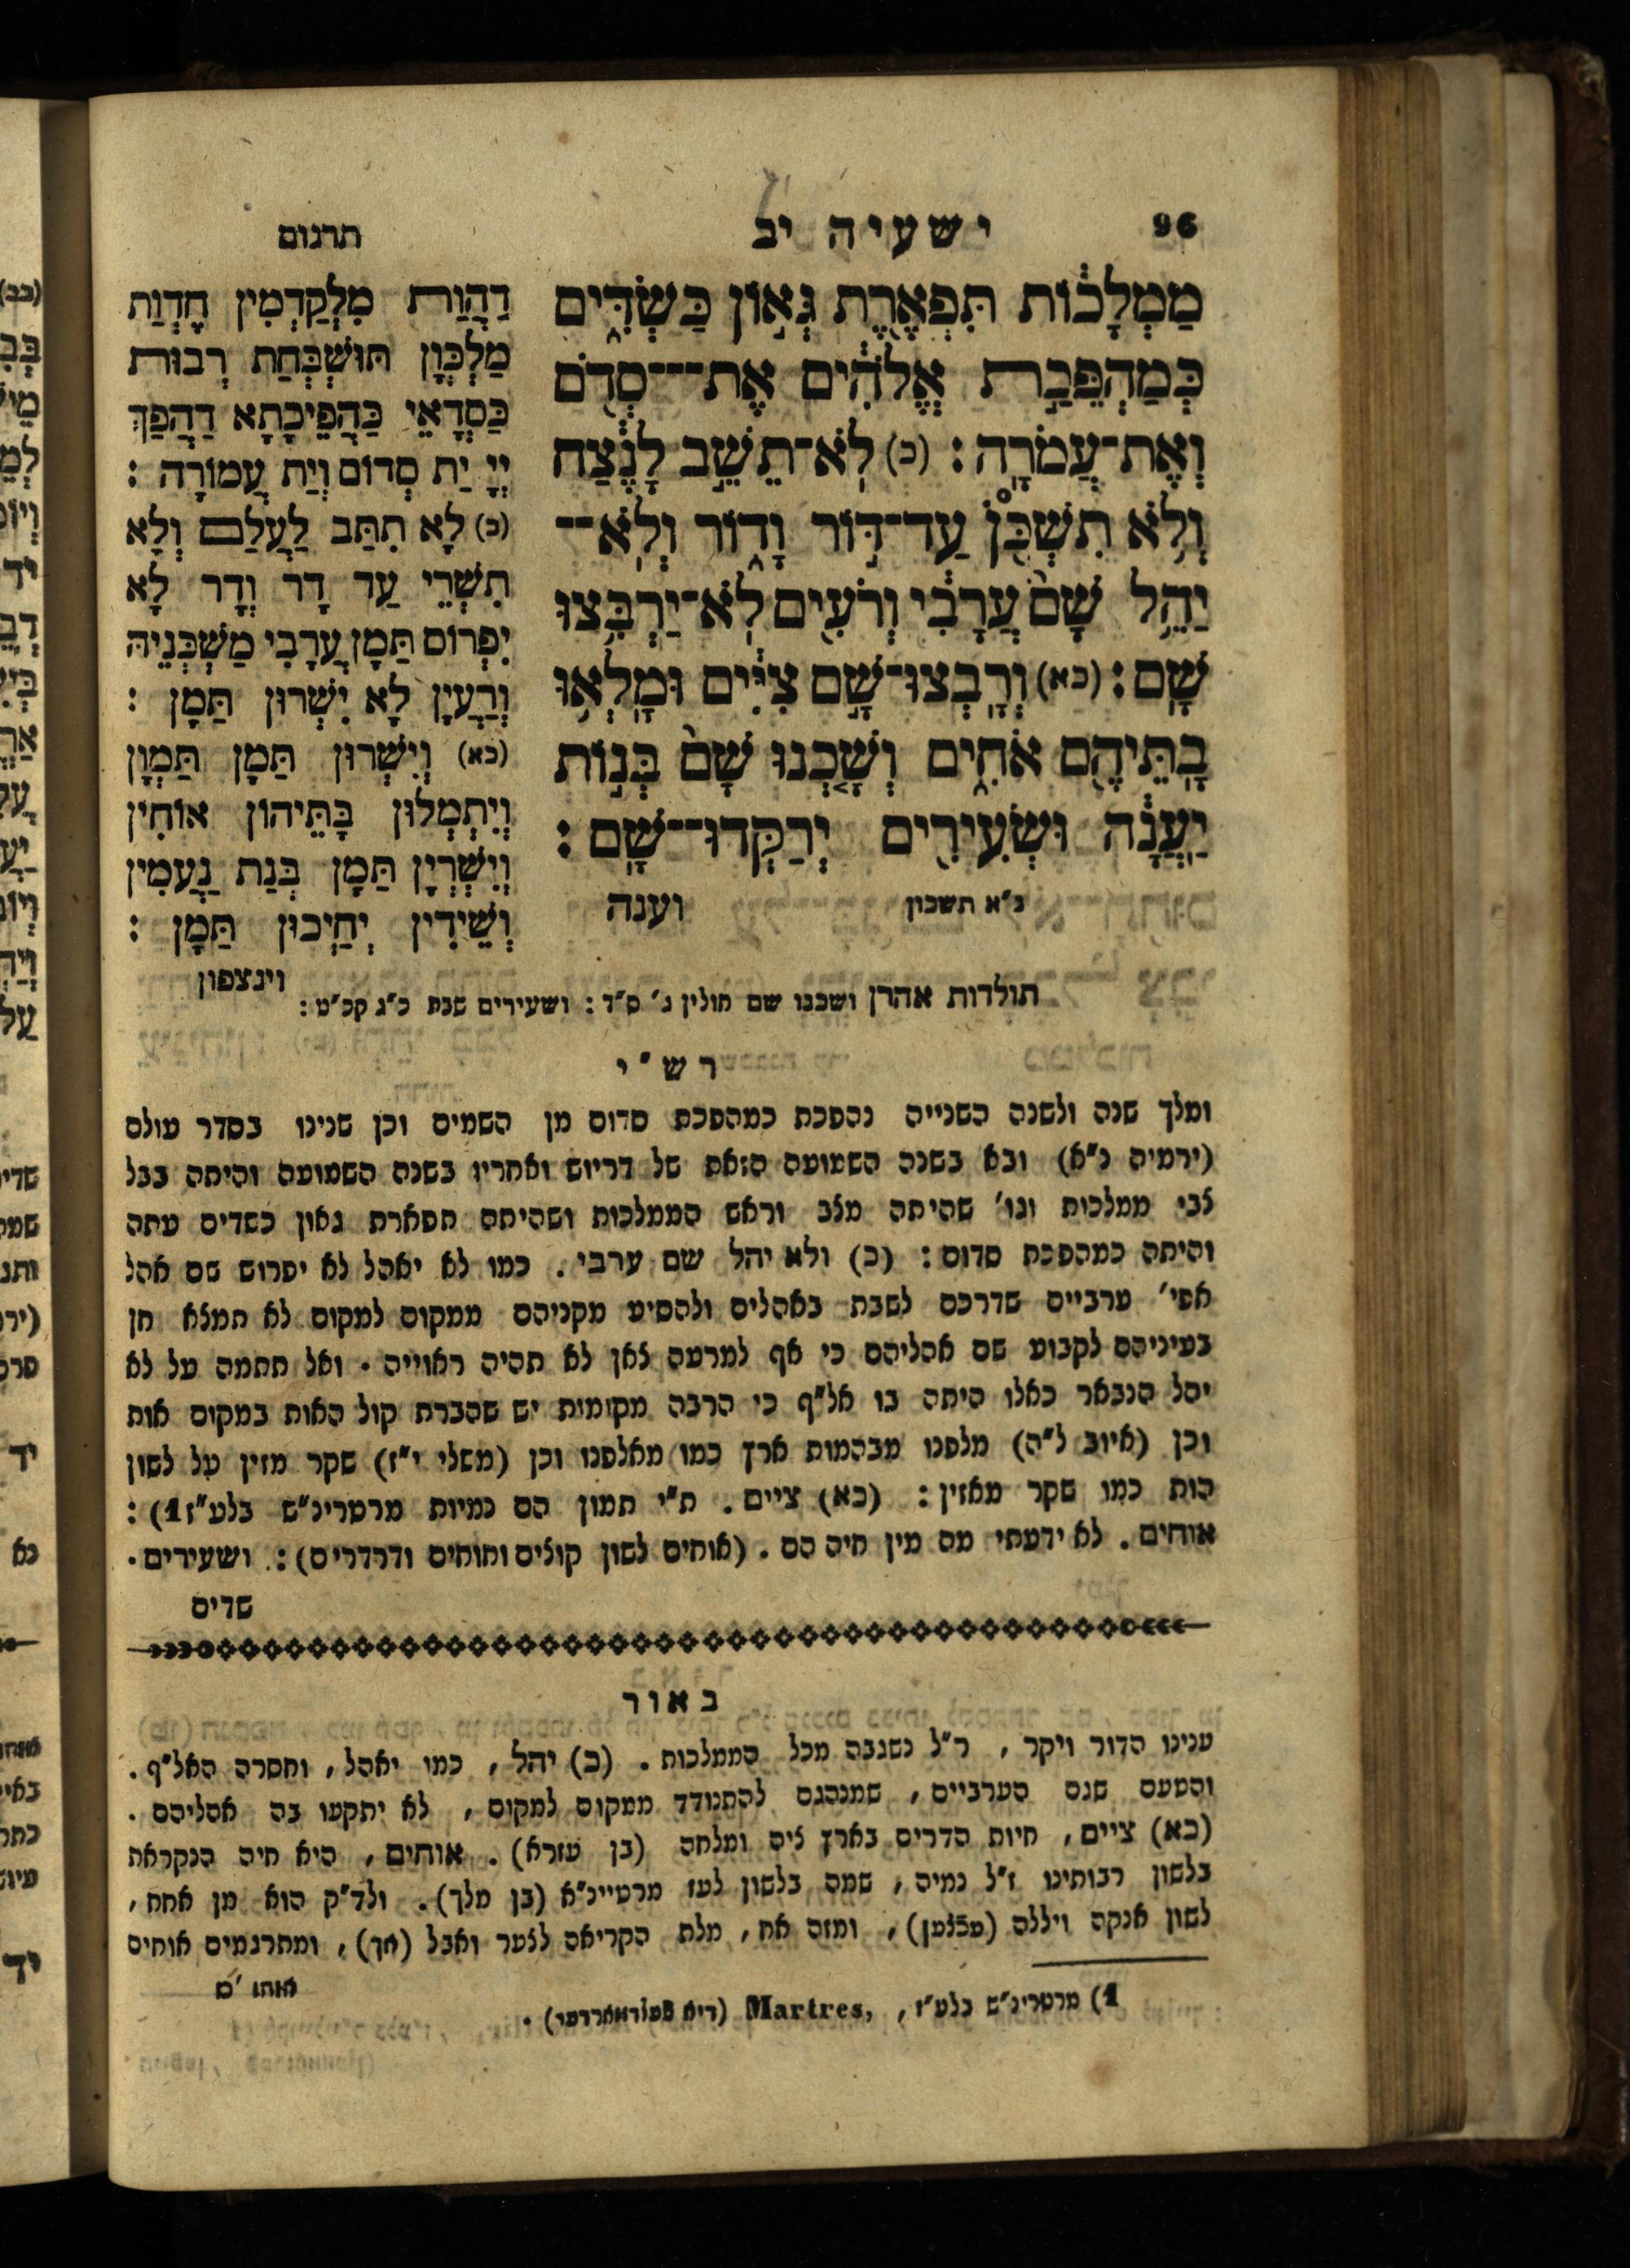 96
ישעיה יב
תרגום
מַמְלָכ֔וֹת תִּפְאֶ֖רֶת גְּא֣וֹן כַּשְׂדִּ֑ים
כְּמַהְפֵּכַ֣ת אֱלֹהִ֔ים אֶת־סְדֹ֖ם
וְאֶת־עֲמֹרָֽה׃ (כ) לֹֽא־תֵשֵׁ֣ב לָנֶ֔צַח
וְלֹ֥א תִשְׁכֹּ֖ן עַד־דּ֣וֹר וָד֑וֹר וְלֹֽא־
יַהֵ֥ל שָׁם֙ עֲרָבִ֔י וְרֹעִ֖ים לֹֽא־יַרְבִּ֥צוּ
שָֽׁם׃ (כא) וְרָֽבְצוּ־שָׁ֣ם צִיִּ֔ים וּמָֽלְא֥וּ
בָֽתֵּיהֶ֖ם אֹחִ֑ים וְשָׁ֤כְנוּ שָׁם֙ בְּנ֣וֹת
יַֽעֲנָ֔ה וּשְׂעִירִ֖ים יְרַקְּדוּ־שָֽׁם׃
נ״א תשכון
וענה
דַהֲוַת מִלְקַדְמִין חֶדְוַת
מַלְכְּוָן תּוּשְׁבְּחַת רְבוּת
כַּסְדָאֵי כַּהֲפֵיכָתָא דַהֲפַךְ
יְיָ יַת סְדוֹם וְיַת עֲמוֹרָה׃
(כ) לָא תִתַּב לַעֲלַם וְלָא
תִשְׁרֵי עַד דָר וְדָר לָא
יִפְרוֹם תַּמָן עֲרָבִי מַשְׁכְּנֵיהּ
וְרַעְיָן לָא יִשְׁרוּן תַּמָן׃
(כא) וְיִשְׁרוּן תַּמָן תַּמְוָן
וְיִתְמְלוּן בָּתֵּיהוֹן אוֹחִין
וְיִשְׁרְיָן תַּמָן בְּנַת נַעֲמִין
וְשֵׁידִין יְחַיְכוּן תַּמָן׃
וינצפון
תולדות אהרן ושכנו שם חולין ג׳ ס״ד: ושעירים שבת כ״ג קכ״ט:
רש״י
ומלך שנה ולשנה השנייה נהפכת כמהפכת סדום מן השמים וכן שנינו בסדר עולם
(ירמיה נ״א) ובא בשנה השמועה הזאת של דריוש ואחריו בשנה השמועה והיתה בבל
צבי ממלכות וגו׳ שהיתה מצב וראש הממלכות ושהיתה תפארת גאון כשדים עתה
והיתה כמהפכת סדום: (כ) ולא יהל שם ערבי. כמו לא יאהל לא יפרוש שם אהל
אפי׳ ערביים שדרכם לשבת באהלים ולהסיע מקניהם ממקום למקום לא תמצא חן
בעיניהם לקבוע שם אהליהם כי אף למרעה צאן לא תהיה ראוייה. ואל תתמה על לא
יהל הנבאר כאלו היתה בו אל״ף כי הרבה מקומות יש שהברת קול האות במקום אות
וכן (איוב ל״ה) מלפנו מבהמות ארץ כמו מאלפנו וכן (משלי י״ז) שקר מזין על לשון
הות כמו שקר מאזין: (כא) ציים. ת״י תמון הם נמיות מרטרינ״ש בלע״ז 1):
אוחים. לא ידעתי מה מין חיה הם. (אוחים לשון קוצים וחוחים ודרדרים): ושעירים.
שדים
באור
ענינו הדור ויקר, ר״ל נשגבה מכל הממלכות. (כ) יהל, כמו יאהל, וחסרה האל״ף.
והטעם שגם הערביים, שמנהגם להתנודד ממקום למקום, לא יתקעו בה אהליהם.
(כא) ציים, חיות הדרים בארץ ציה ומלחה (בן עזרא). אוחים, היא חיה הנקראת
בלשון רבותינו ז״ל נמיה, שמה בלשון לעז מרטיינ״א (בן מלך). ולד״ק הוא מן אחח,
לשון אנקה ויללה, ומזה אח, מלת הקריאה לצער ואבל (אך), ומתרגמים אוחים
1) מרטרינ״ש בלע״ז, Martres,